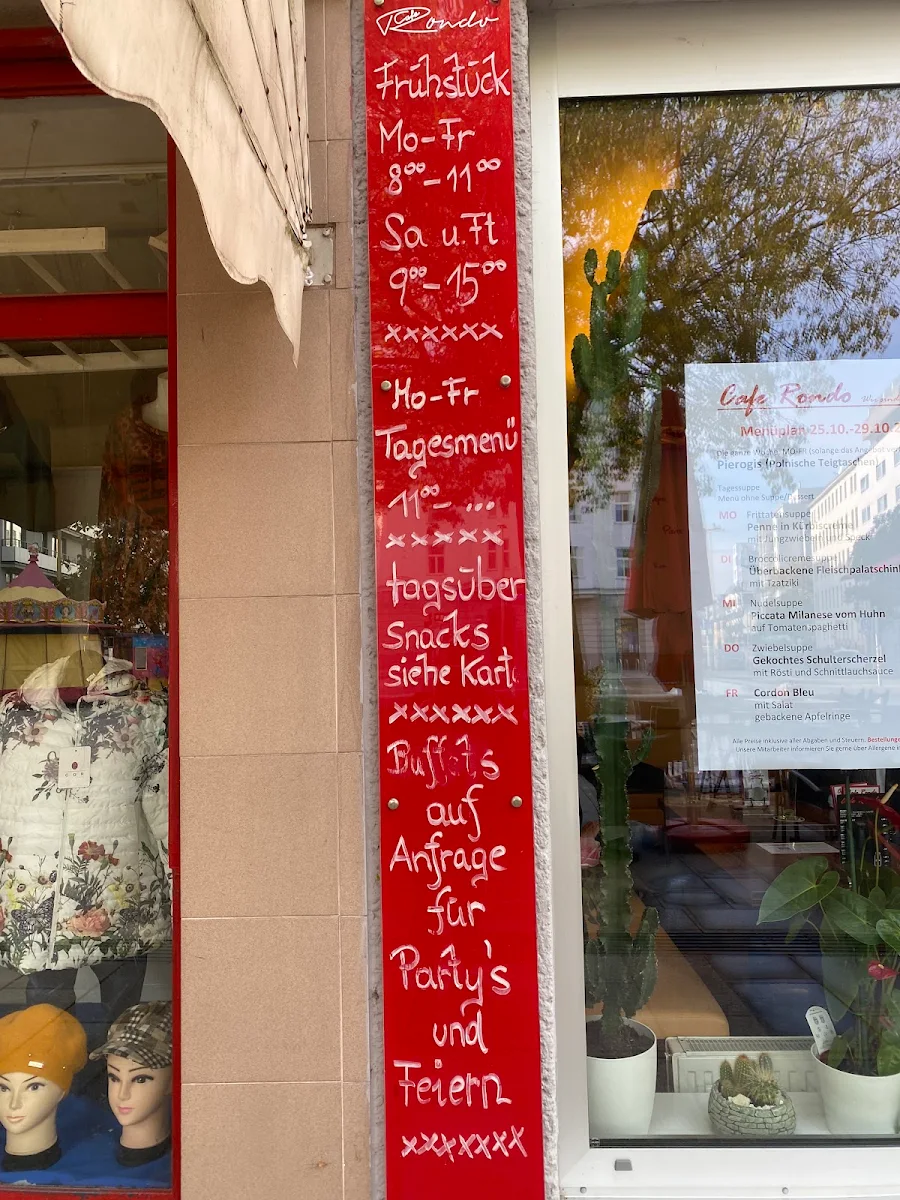 Cafe Rondo
Frühstück
Mo-Fr
8⁰⁰-11⁰⁰
Sa u. Ft
9⁰⁰-15⁰⁰
xxxxxx
Mo-Fr
Tagesmenü
11⁰⁰- ...
xxxxx
tagsüber
Snacks
siehe Karte
xxxxxx
Buffets
auf
Anfrage
für
Party's
und
Feiern
xxxxxxx
Cafe Rondo Wir sind
Menüplan 25.10.-29.10.2
Pierogis (Polnische Teigtaschen)
Tagessuppe
Menü ohne Suppe/Dessert
MO Frittatensuppe
Penne in Kürbiscreme
mit Jungzwiebeln und Speck
DI Broccolicremesuppe
Überbackene Fleischpalatschink
mit Tzatziki
MI Nudelsuppe
Piccata Milanese vom Huhn
auf Tomatenspaghetti
DO Zwiebelsuppe
Gekochtes Schulterscherzel
mit Rösti und Schnittlauchsauce
FR Cordon Bleu
mit Salat
gebackene Apfelringe
Alle Preise inklusive aller Abgaben und Steuern. Bestellunge
Unsere Mitarbeiter informieren Sie gerne über Allergene